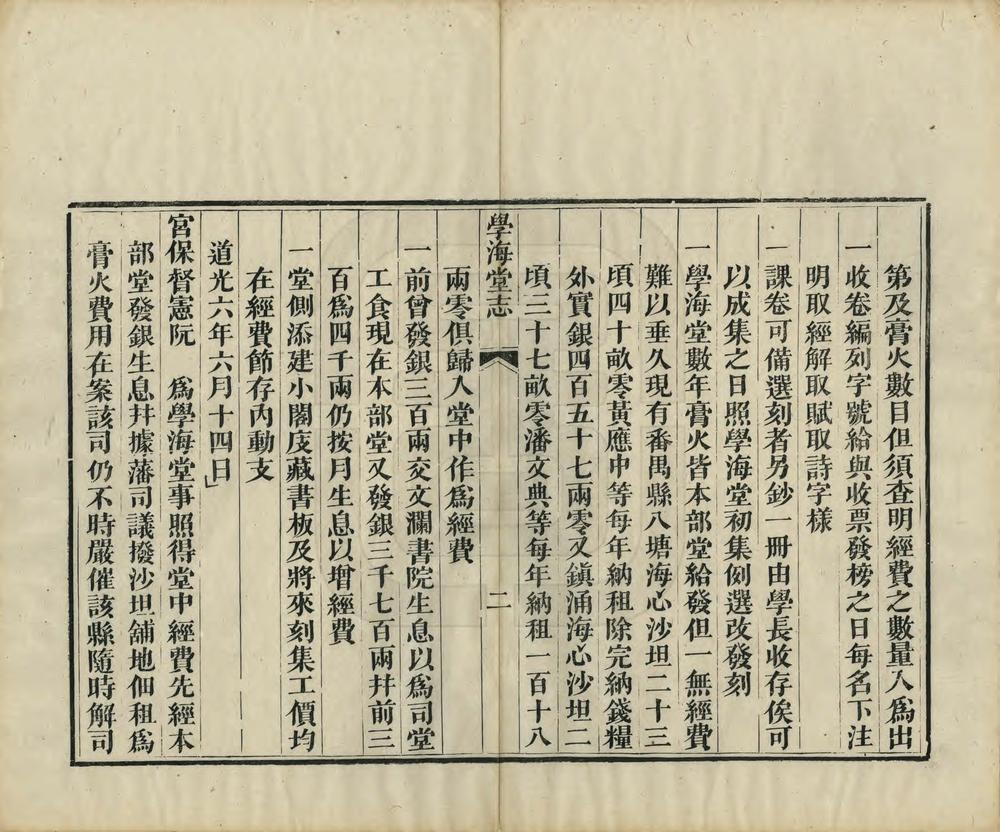 第及膏火數目但須查明經費之數量入爲出
一收卷編列字號給與收票發榜之日每名下注
明取經解取賦取詩字樣
一課卷可備選刻者另鈔一冊由學長收存俟可
以成集之日照學海堂初集例選改發刻
一學海堂數年膏火皆本部堂給發但一無經費
難以垂久現有番禺縣八塘海心沙坦二十三
頃四十畝零黃應中等每年納租除完納錢糧
外實銀四百五十七兩零又鎮涌海心沙坦二
頃三十七畝零潘文典等每年納租一百十八
學海堂志
二
兩零俱歸入堂中作爲經費
一前曾發銀三百兩交文瀾書院生息以爲司堂
工食現在本部堂又發銀三千七百兩幷前三
百爲四千兩仍按月生息以增經費
一堂側添建小閣庋藏書板及將來刻集工價均
在經費節存內動支
道光六年六月十四日」
宮保督憲阮　爲學海堂事照得堂中經費先經本
部堂發銀生息幷據藩司議撥沙坦舖地佃租爲
膏火費用在案該司仍不時嚴催該縣隨時解司